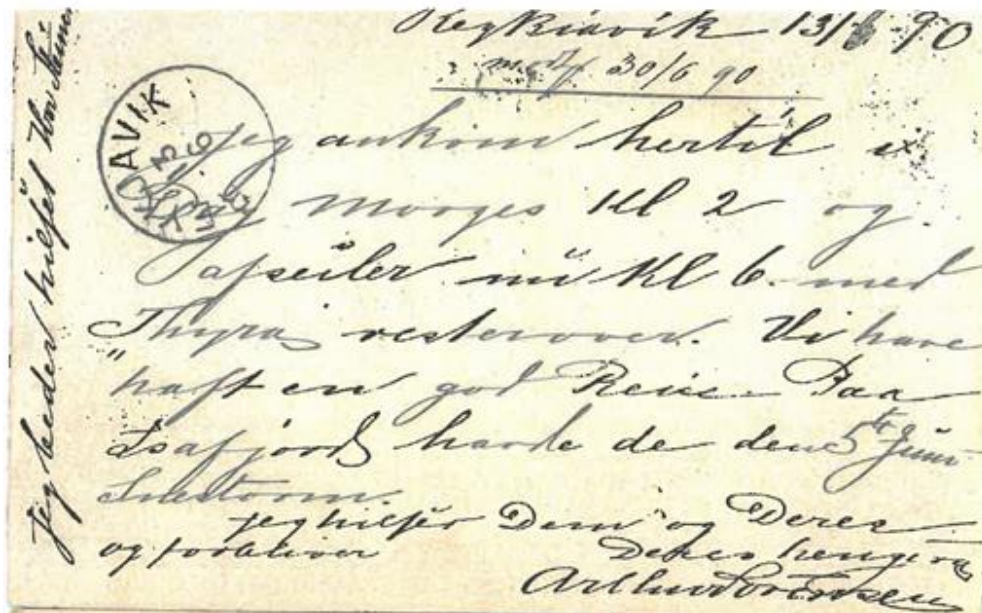 Reykiavik 13/6 90
30/6 90
AVIK
Jeg ankom hertil
Morges Kl 2 og
afseiler nu Kl 6 med
Thyra vesterover. Vi have
haft en god Reise. Paa
Isafjord havde de den 5te Juni
Snestorm.
jeg hilser Dem og Deres
og forbliver Deres hengivne
Arthur
Jeg beder hilse